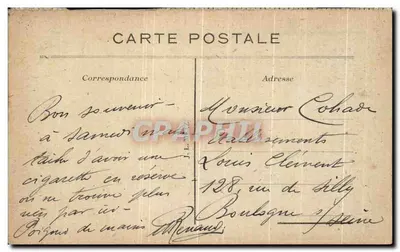 CARTE POSTALE
Correspondance
Adresse
Bon souvenir -
à samedi mais
tâche d'avoir une
cigarette en réserve
on ne trouve plus
rien par ici -
Poignée de mains Renaud
Monsieur
Établissements
Louis Clément
128, rue de Silly
Boulogne s/ Seine
CPARAMA